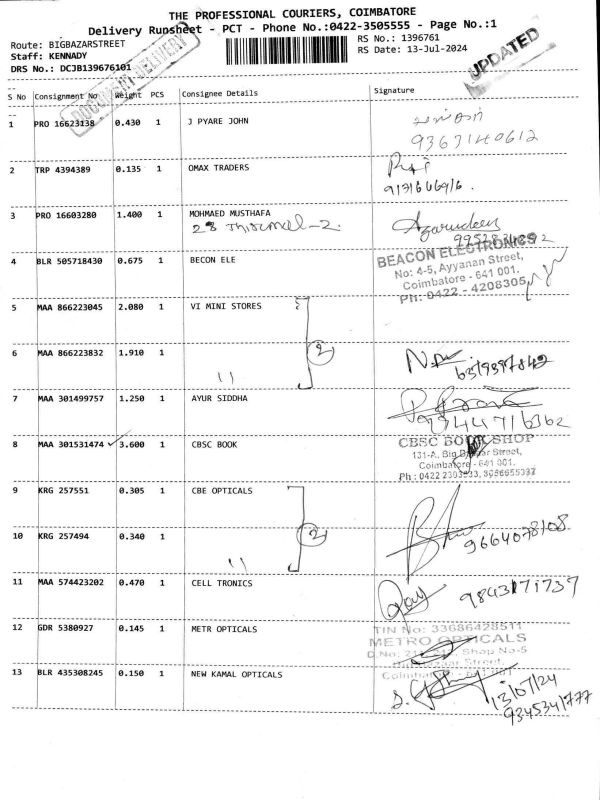 THE PROFESSIONAL COURIERS, COIMBATORE
Delivery Runsheet - PCT - Phone No.:0422-3505555 - Page No.:1
Route: BIGBAZARSTREET
RS No.: 1396761
Staff: KENNADY
RS Date: 13-Jul-2024
DRS No.: DCJB139676101
UPDATED
DOCUMENT DELIVERY
S No Consignment No Weight PCS Consignee Details Signature
1 PRO 16623138 0.430 1 J PYARE JOHN
9363140612
2 TRP 4394389 0.135 1 OMAX TRADERS
3 PRO 16603280 1.400 1 MOHMAED MUSTHAFA
28 Thirumal-2.
Azarudeen
4 BLR 505718430 0.675 1 BECON ELE
BEACON ELECTRONICS
No: 4-5, Ayyanan Street,
Coimbatore - 641 001.
PH: 0422 - 4208305
5 MAA 866223045 2.080 1 VI MINI STORES
2
6 MAA 866223832 1.910 1 11
6379397842
7 MAA 301499757 1.250 1 AYUR SIDDHA
9344716362
8 MAA 301531474 ✓ 3.600 1 CBSC BOOK
CBSC BOOK SHOP
131-A, Big Bazaar Street,
Coimbatore - 641 001.
9 KRG 257551 0.305 1 CBE OPTICALS
2
10 KRG 257494 0.340 1 11
9664078108
11 MAA 574423202 0.470 1 CELL TRONICS
9843171737
12 GDR 5380927 0.145 1 METR OPTICALS
TIN No: 33686428511
METRO OPTICALS
13 BLR 435308245 0.150 1 NEW KAMAL OPTICALS
13/07/24
9345341777